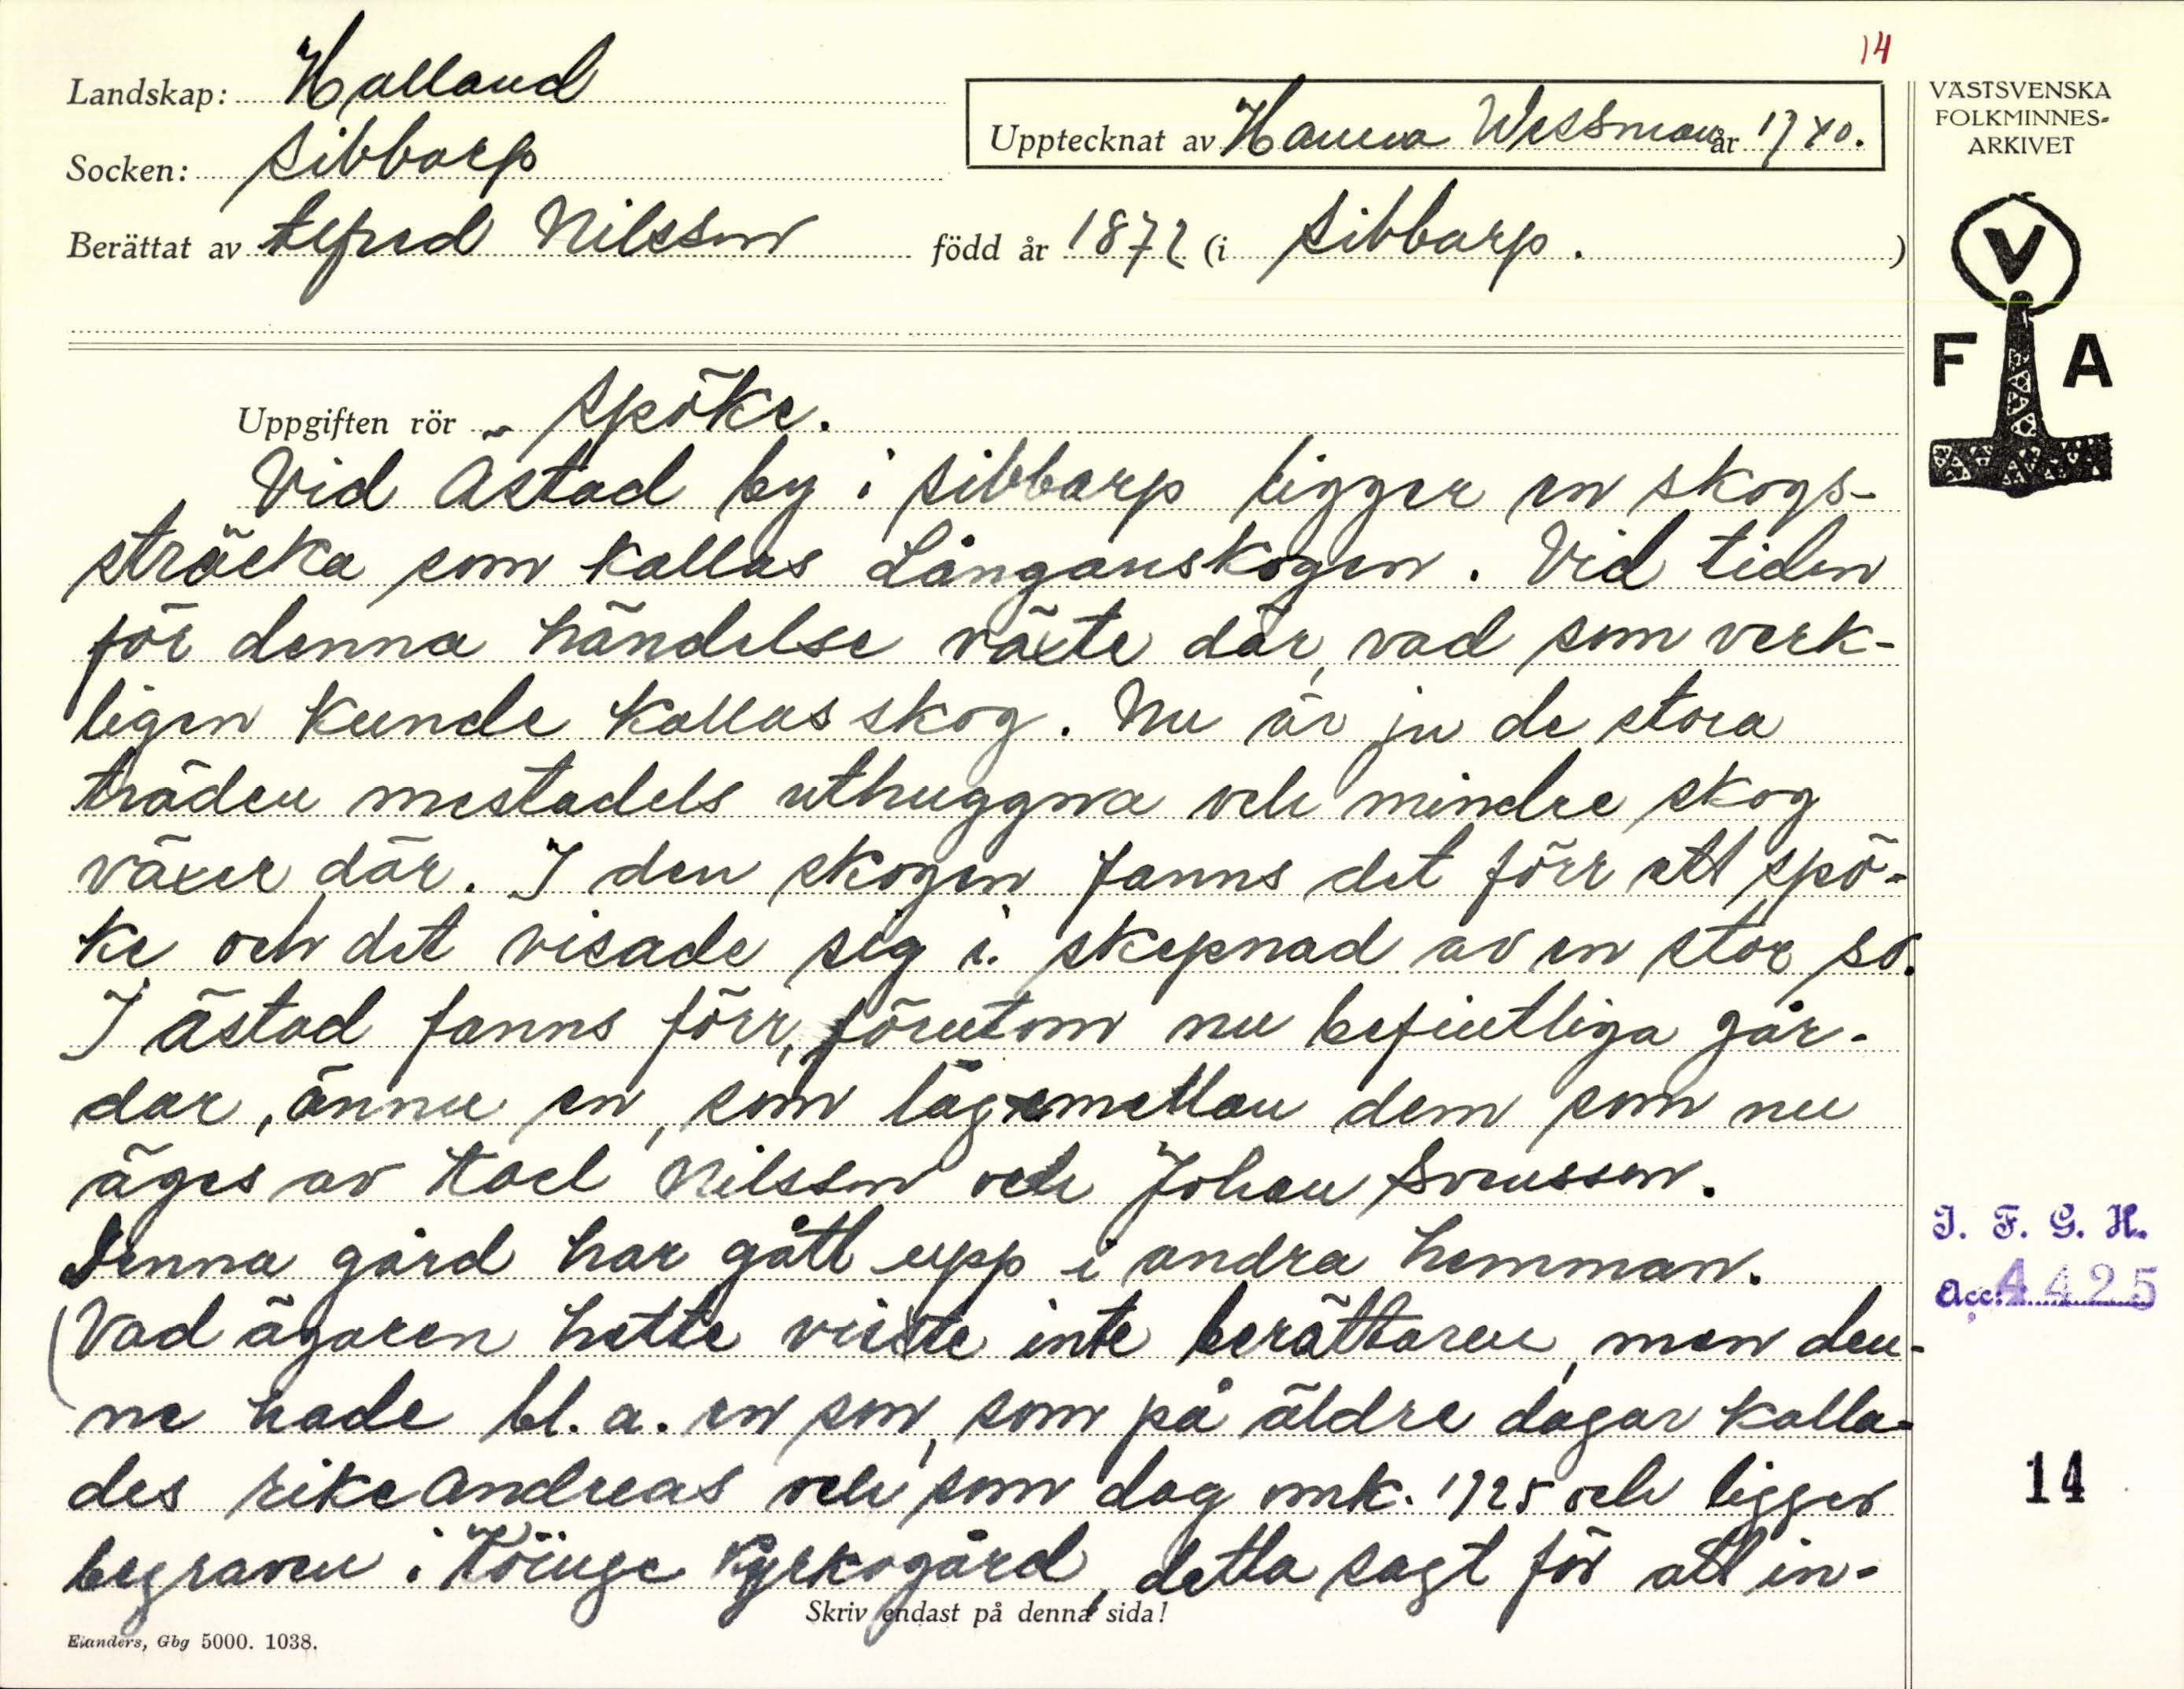 14
Landskap: Halland
Socken: Sibbarp
Upptecknat av Hanna Wessman år 1940.
Berättat av Alfred Nilsson född år 1872 (i Sibbarp. )
VÄSTSVENSKA
FOLKMINNES-
ARKIVET
V
F A
Uppgiften rör Spöke.
Vid Ästad by i Sibbarp ligger en skogs-
sträcka som kallas Långanskogen. Vid tiden
för denna händelse växte där, vad som verk-
ligen kunde kallas skog. Nu är ju de stora
träden mestadels uthuggna och mindre skog
växer där. I den skogen fanns det förr ett spö-
ke och det visade sig i skepnad av en stor so.
I Ästad fanns förr, förutom nu befintliga går-
dar, ännu en, som låg emellan dem som nu
äges av Axel Nilsson och Johan Svensson.
Denna gård har gått upp i andra hemman.
(Vad ägaren hette visste inte berättaren, men den-
ne hade bl. a. en son, som på äldre dagar kalla-
des rike Andreas och som dog omk. 1925 och ligger
begraven i Köinge kyrkogård, detta sagt för att in-
Skriv endast på denna sida!
Elanders, Gbg 5000. 1038.
I. F. G. H.
Acc: 4425
14